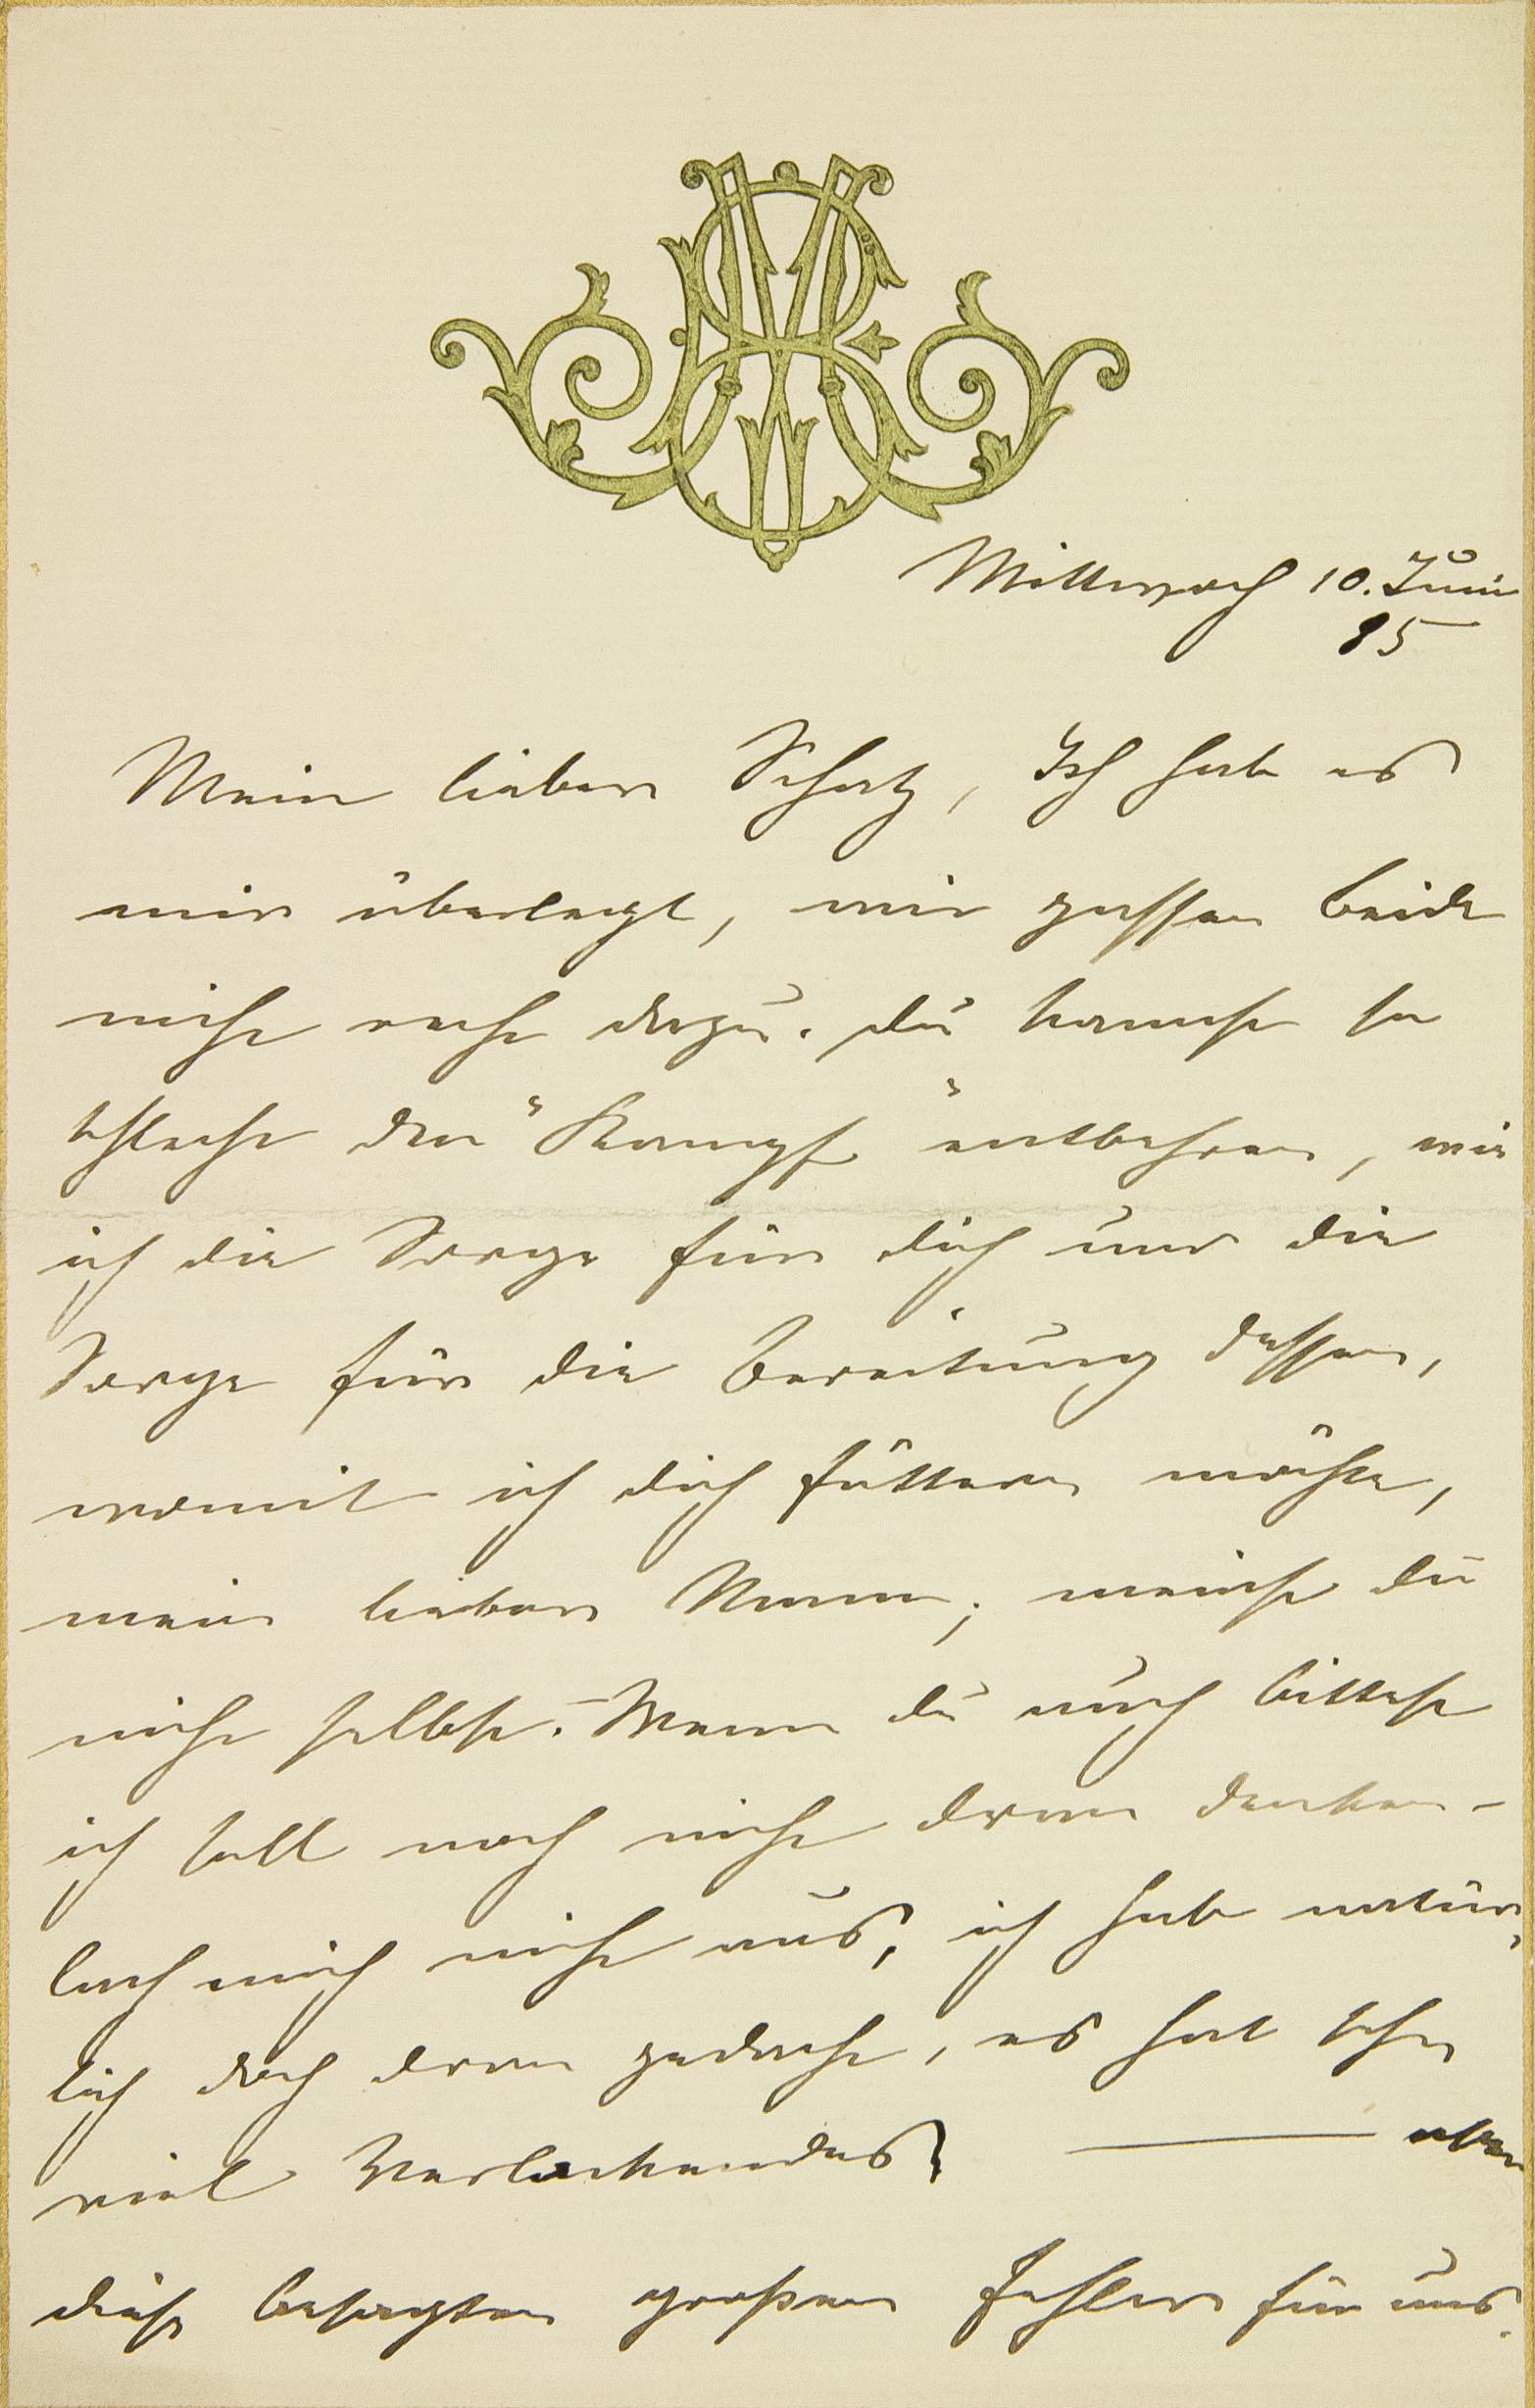 Mittwoch 10. Juni
85
Mein lieber Schatz, Ich hab es
mir überlegt, wir passen beide
nicht recht dazu. Du kannst so
schlecht den "Kampf" entbehren, wie
ich die Sorge für dich und die
Sorge für die Bereitung dessen,
womit ich dich füttern möchte,
mein lieber Mann; meinst du
nicht selbst. – Wenn du mich bittest
ich soll noch nicht dran denken –
lach mich nicht aus, ich hab natür-
lich doch dran gedacht, es hat sehr
viel Verlockendes, — aber
diese besagten großen Fehler für uns.